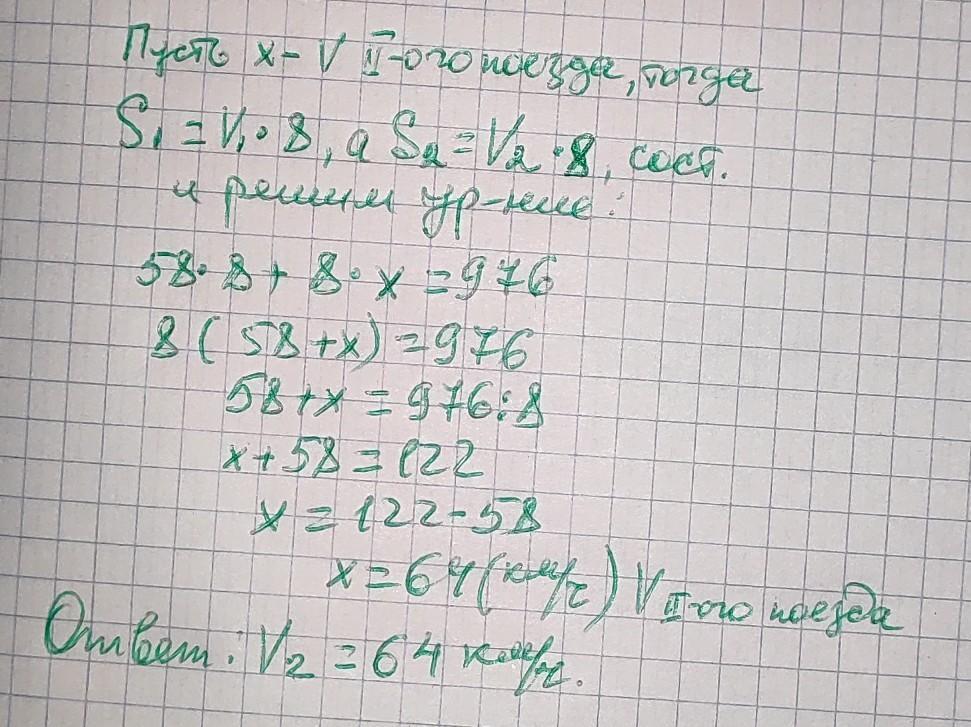 Пусть x - V II-ого поезда, тогда
S₁ = V₁ · 8, а S₂ = V₂ · 8, сост.
и решим ур-ние:
58 · 8 + 8 · x = 976
8 ( 58 + x ) = 976
58 + x = 976 : 8
x + 58 = 122
x = 122 - 58
x = 64 (км/ч) V II-ого поезда
Ответ: V₂ = 64 км/ч.